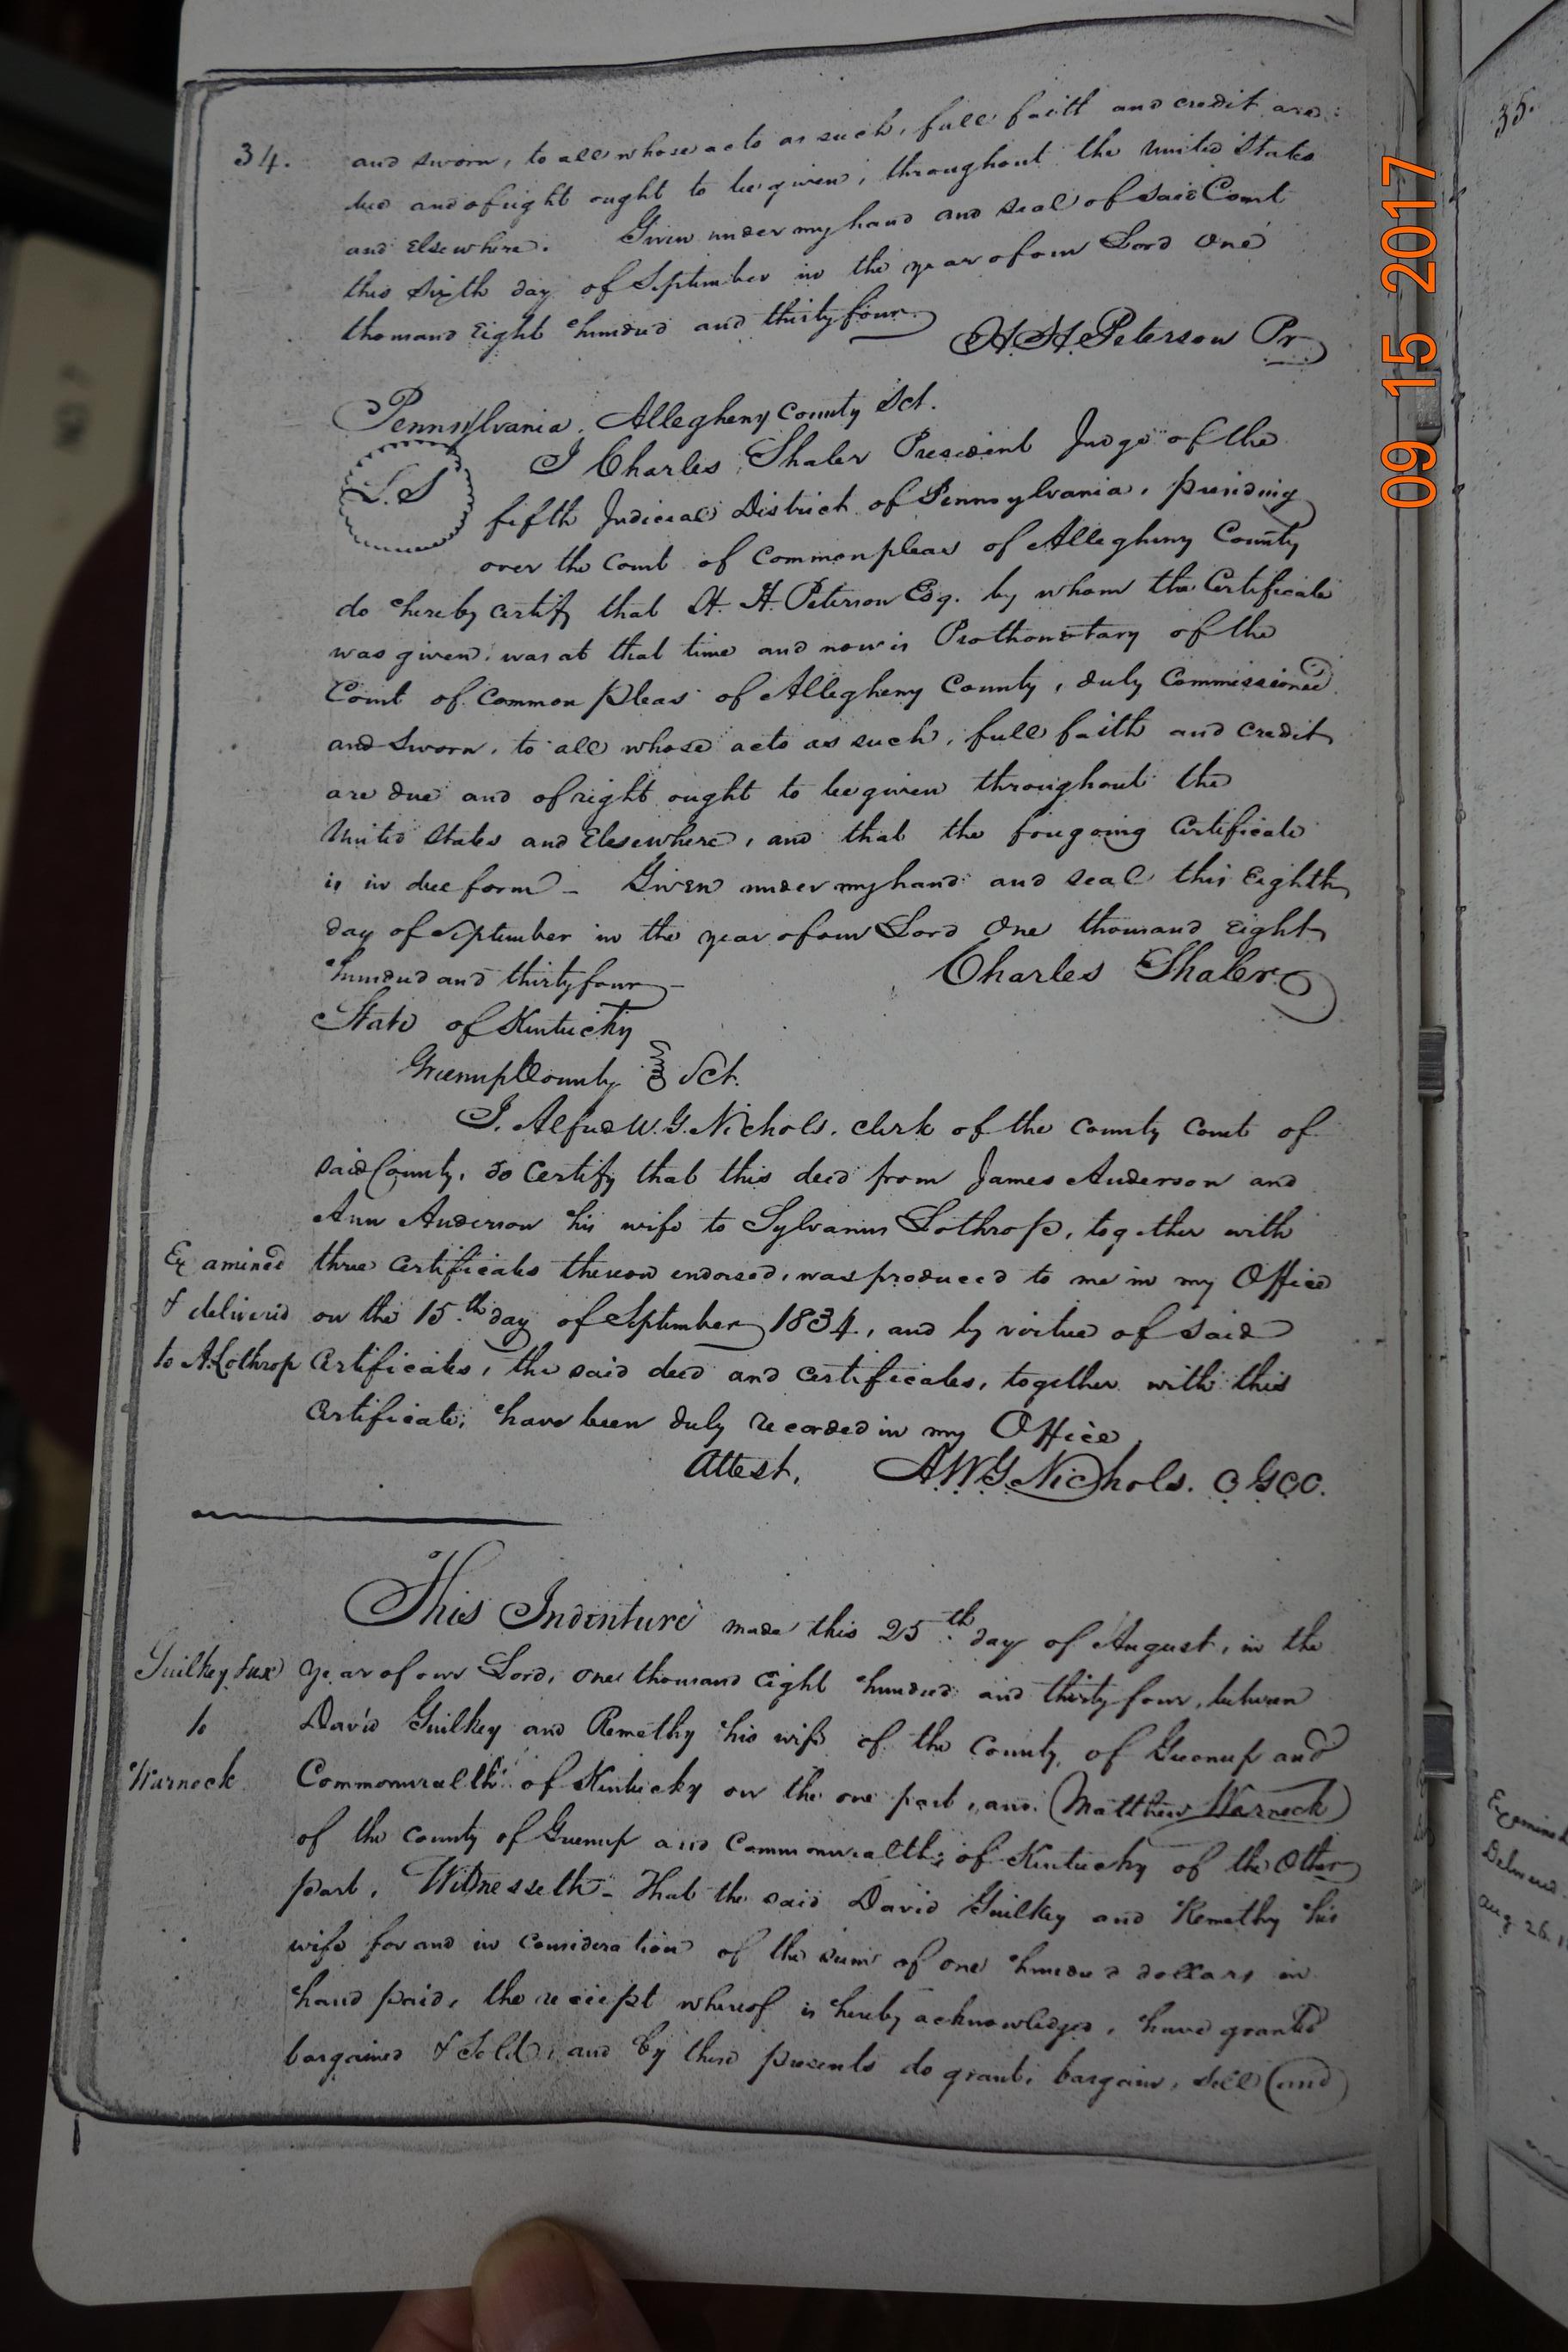 34.
and sworn, to all whose acts as such, full faith and credit are
due and of right ought to be given, throughout the United States
and Elsewhere. Given under my hand and seal of said Court
this Sixth day of September in the year of our Lord One
thousand Eight hundred and thirty four
H. H. Peterson Pr
Pennsylvania, Allegheny County Sct.
L.S
I Charles Shaler President Judge of the
fifth Judicial District of Pennsylvania, presiding
over the Court of Common pleas of Allegheny County
do hereby certify that H. H. Peterson Esq. by whom the Certificate
was given, was at that time and now is Prothonotary of the
Court of Common pleas of Allegheny County, duly Commissioned
and Sworn, to all whose acts as such, full faith and credit
are due and of right ought to be given throughout the
United States and Elsewhere, and that the foregoing Certificate
is in due form - Given under my hand and seal this Eighth
day of September in the year of our Lord One thousand Eight
hundred and thirty four -
Charles Shaler
State of Kentucky
Greenup County Sct.
I, Alfred W. G. Nichols, clerk of the County Court of
said County, do Certify that this deed from James Anderson and
Ann Anderson his wife to Sylvanus Lothrop, together with
three Certificates thereon endorsed, was produced to me in my Office
on the 15th day of September 1834, and by virtue of said
Certificates, the said deed and certificates, together with this
Certificate, have been duly recorded in my Office
Attest, A.W.G. Nichols. C G C C.
Examined
& delivered
to A. Lothrop
This Indenture made this 25th day of August, in the
year of our Lord, one thousand Eight hundred and thirty four, between
David Guilkey and Remethy his wife of the County, of Greenup and
Commonwealth of Kentucky on the one part, and (Matthew Warnock)
of the County of Greenup and Commonwealth of Kentucky of the Other
part, Witnesseth - That the said David Guilkey and Remethy his
wife for and in Consideration of the sum of one hundred dollars in
hand paid, the reciept whereof is hereby acknowledged, have granted
bargained & Sold, and by these presents do grant, bargain, sell (and)
Guilkey & ux
to
Warnock
35.
Examined
Delivered
Aug 26.
09 15 2017